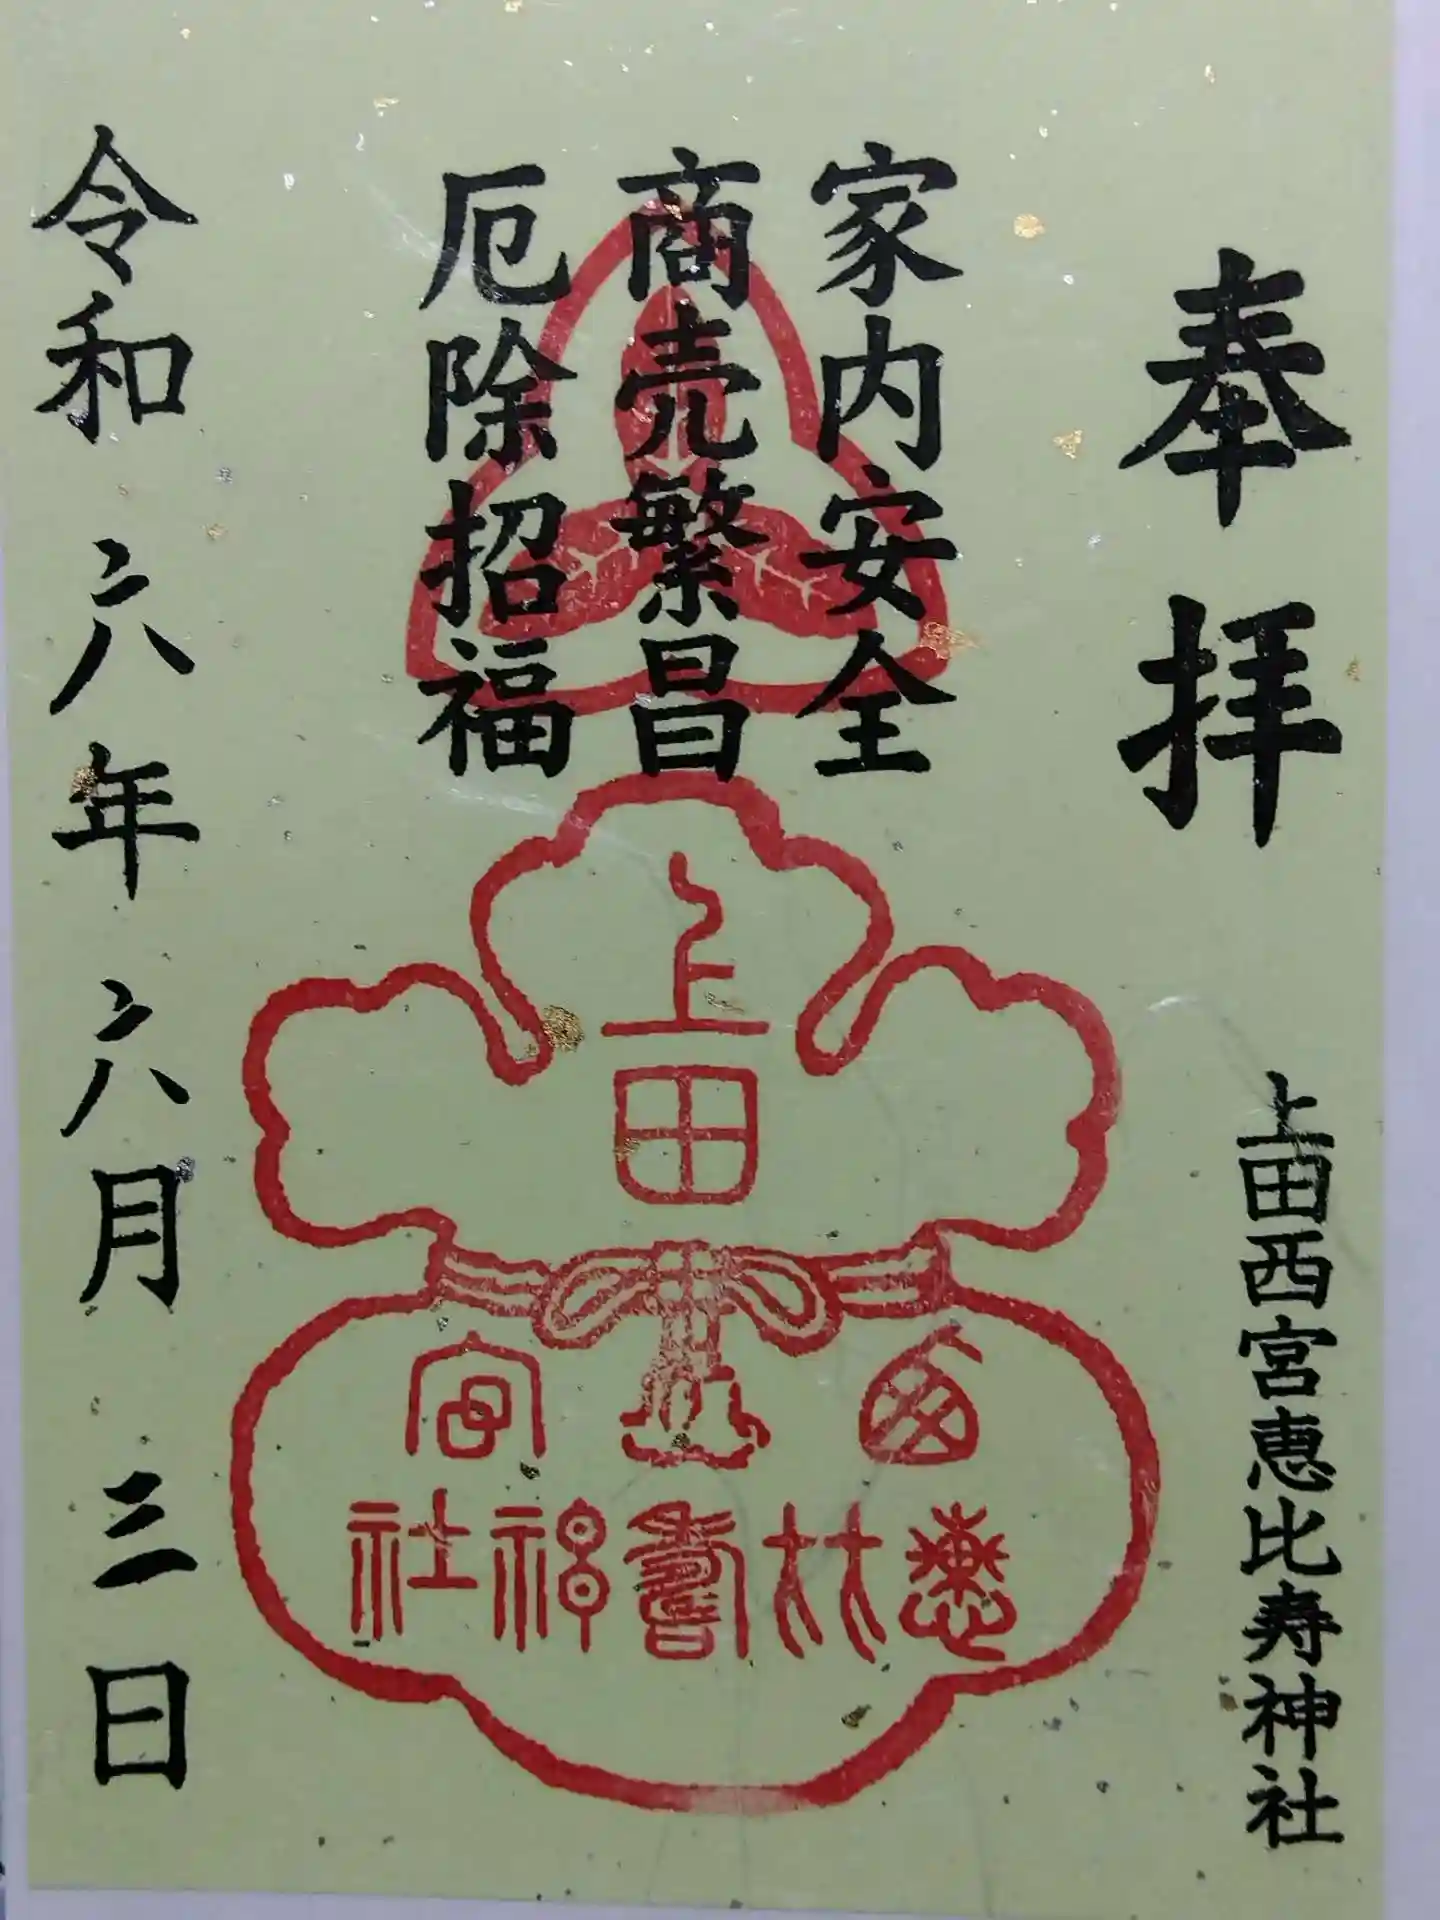 奉拝
上田西宮恵比寿神社
家内安全
商売繁昌
厄除招福
上田
西宮
恵比寿神社
令和六年六月三日